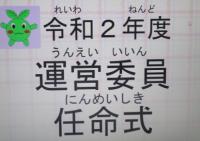 れいわ ねんど
令和２年度
うんえい いいん
運営委員
にんめいしき
任命式